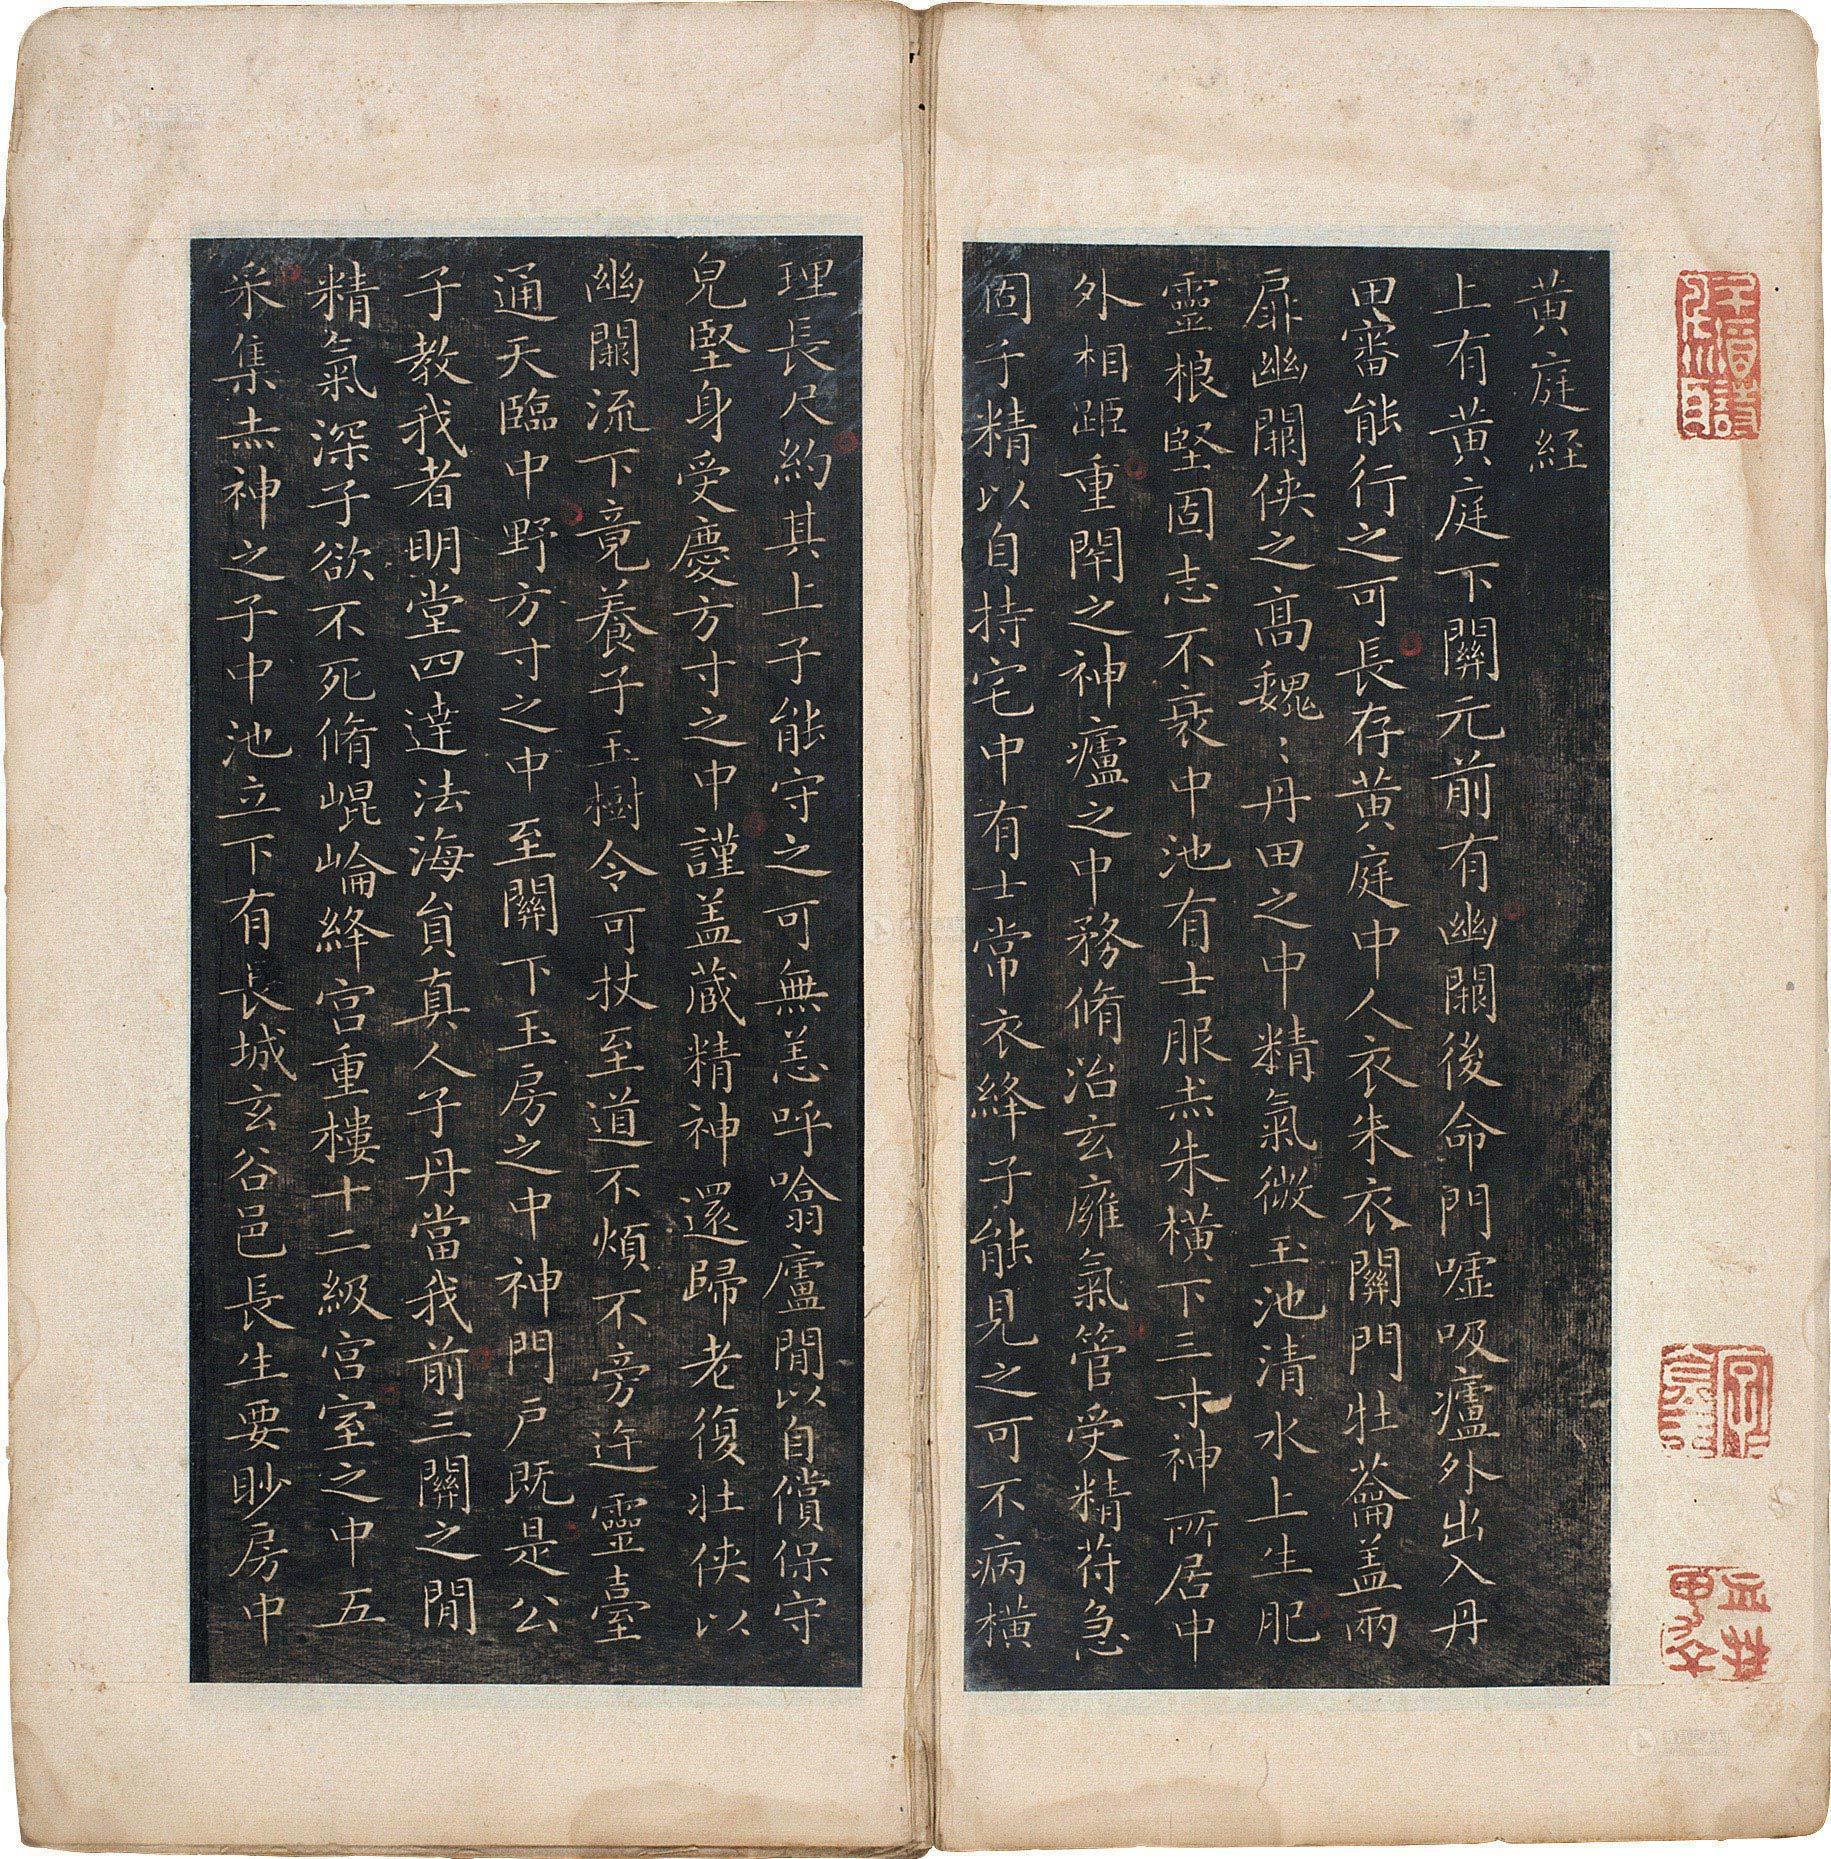 黃庭經
上有黃庭下關元前有幽闕後命門噓吸廬外出入丹
田審能行之可長存黃庭中人衣朱衣關門壯籥盖兩
扉幽闕俠之高魏〻丹田之中精氣微玉池清水上生肥
靈根堅固志不衰中池有士服赤朱橫下三寸神所居中
外相距重閇之神廬之中務脩治玄廱氣管受精苻急
固子精以自持宅中有士常衣絳子能見之可不病橫
理長尺約其上子能守之可無恙呼噏廬閒以自償保守
皃堅身受慶方寸之中謹盖蔵精神還歸老復壯俠以
幽闕流下竟養子玉樹令可杖至道不煩不旁迕靈臺
通天臨中野方寸之中至關下玉房之中神門戶既是公
子教我者明堂四達法海員真人子丹當我前三關之閒
精氣深子欲不死脩崐崘絳宮重樓十二級宮室之中五
采集赤神之子中池立下有長城玄谷邑長生要眇房中